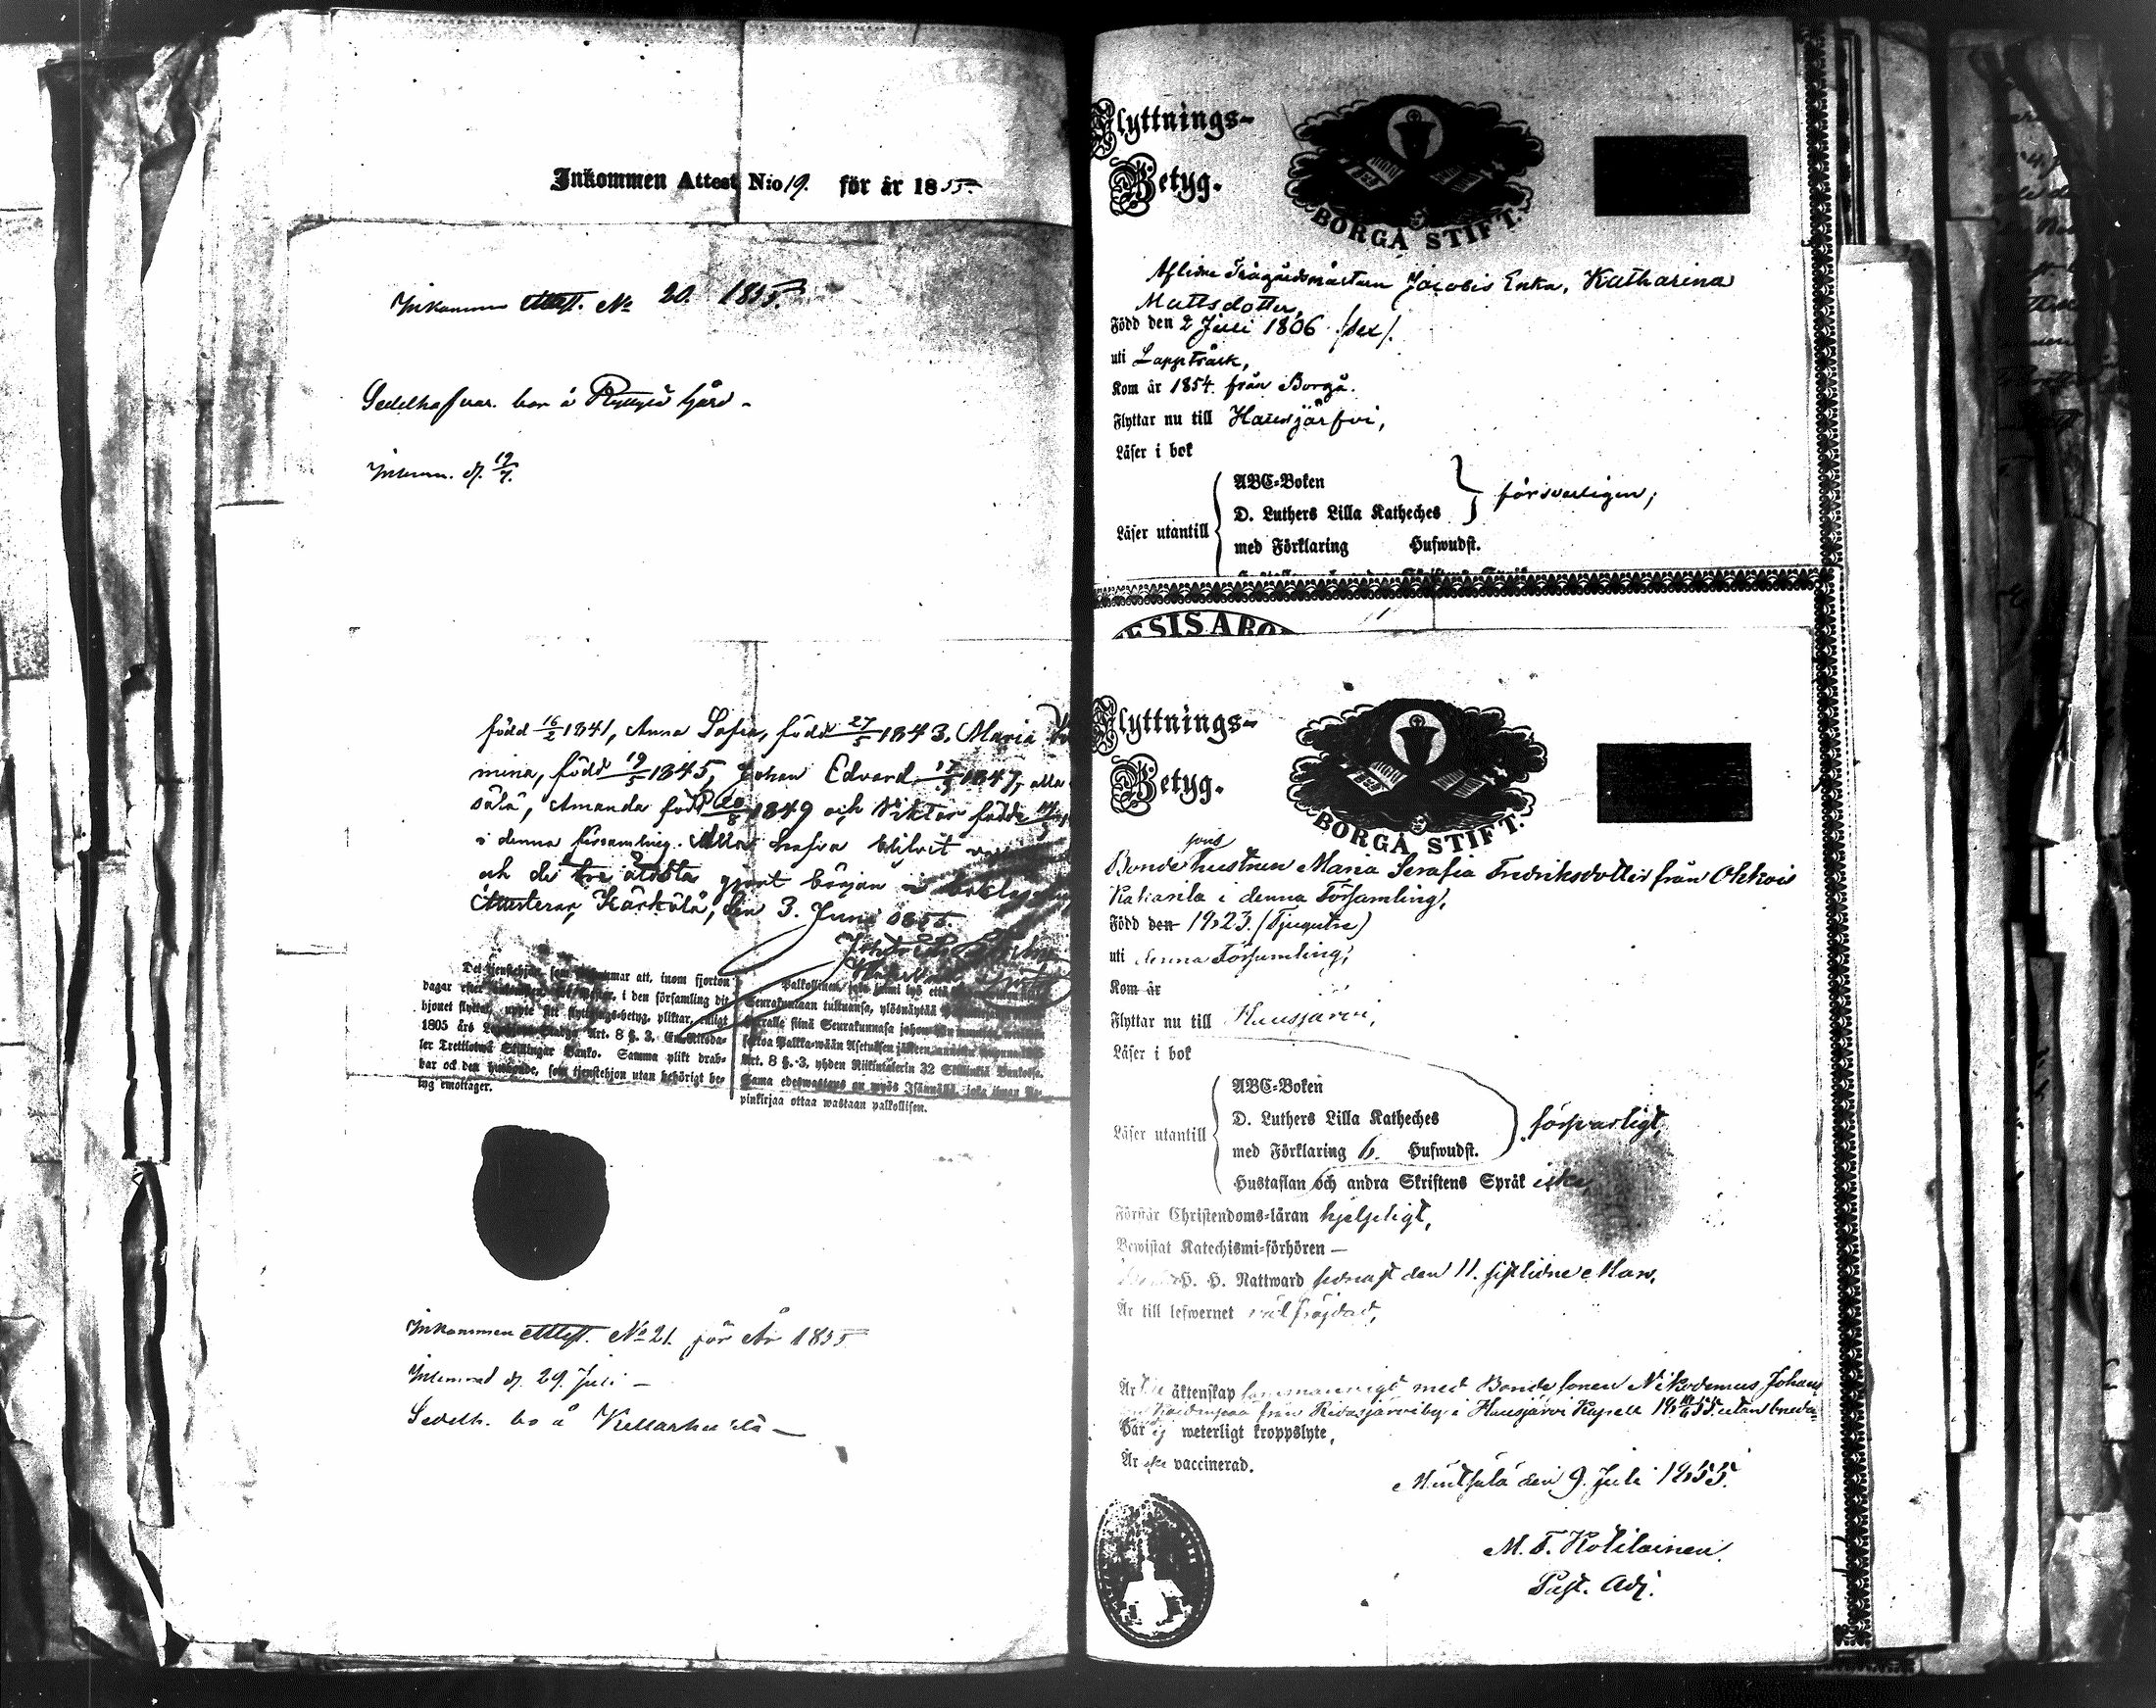 Inkommen Attest N:o 19. för år 1855.
Inkommen Attest. No 20. 1855.
Sedelhafvar. bor å gård -
d. 19/7.
född 16/2 1841, Anna Sofia, född 27/5 1843, Maria
mina, född 19/5 1845, Johan Edvard 1847, alla
Amanda född 20/8 1849 och Viktor född
i denna församling. Alla blifvit
och de tre äldsta gjort början
Attesterar, Kärkölä, den 3. Juni 1855.
Det tjenstehjon, som att, inom fjorton
dagar efter i den församling dit
hjonet flyttat, uppte sitt flyttnings-betyg, pliktar, enligt
1805 års Stadga Art. 8 §. 3, En Riksda-
ler Trettiotwå Skillingar Banko. Samma plikt drab-
bar ock den husbonde, som tjenstehjon utan behörigt be-
tyg emottager.
Palkollinen, joka
Seurakuntaan tultuansa, ylösnäytää
siinä Seurakunnasa johon
Palkka-wään Asetuksen jälkeen
Art. 8 §. 3, yhden Riikintalerin 32 Skillinkiä Bankosa.
Sama edeswastaus on myös Isännällä, joka ilman
pinkirjaa ottaa wastaan palkollisen.
Inkommen Attest. No 21. för År 1855
d. 29. Juli -
Sedelh. bo å
Flyttnings-
Betyg.
BORGÅ STIFT.
Aflidne Trägårdsmästaren Jacobis Enka, Katharina
Mattsdotter,
Född den 2 Juli 1806 /sex/.
uti Lappträsk,
Kom år 1854. från Borgå.
Flyttar nu till Hausjärfvi,
Läser i bok
ABC-Boken
D. Luthers Lilla Katheches
försvarligen;
Läser utantill
med Förklaring Hufwudst.
ESIS ABO
Flyttnings-
Betyg.
BORGÅ STIFT.
Bondesons hustrun Maria Serafia Fredriksdotter från Ohkois
i denna Församling,
Född den 1823. (Tjugutre)
uti denna Församling;
Kom år
Flyttar nu till Hausjärvi,
Läser i bok
ABC-Boken
D. Luthers Lilla Katheches
försvarligt,
Läser utantill
med Förklaring 6. Hufwudst.
Hustaflan och andra Skriftens Språk icke,
Förstår Christendoms-läran hjelpligt,
Bewistat Katechismi-förhören —
H. H. Nattward senast den 11. sistlidne Mars,
Är till lefwernet väl frägdad,
Är äktenskap med Bonde sonen Nikodemus Johans
från by i Hausjärvi Kapell
Har ej weterligt kroppslyte,
Är icke vaccinerad.
Mäntsälä den 9. Juli 1855.
M. F. Kotilainen.
Past. Adj.